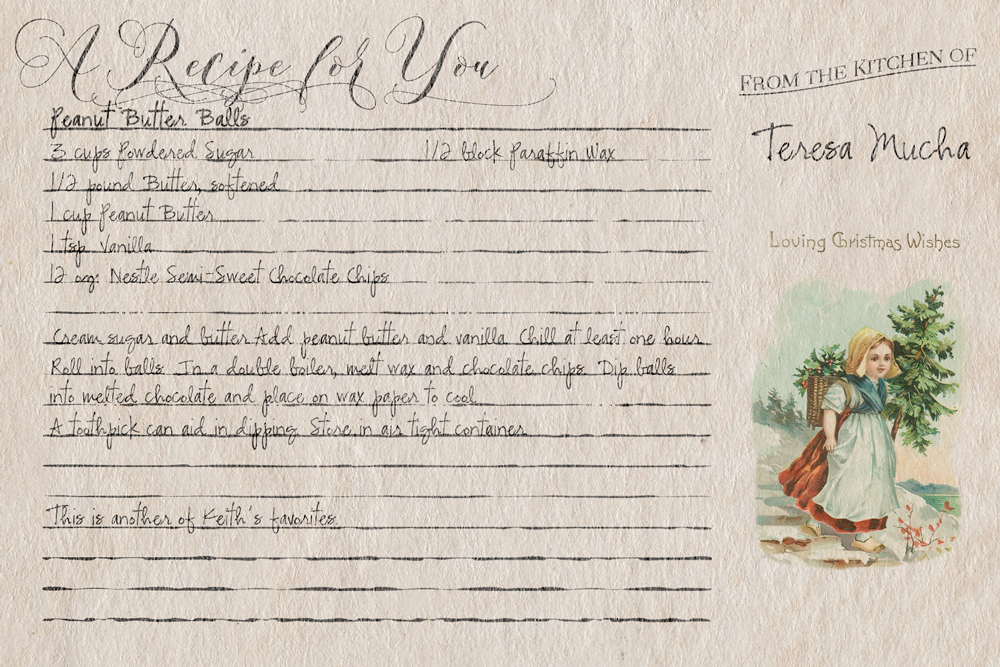 A Recipe for You
FROM THE KITCHEN OF
Teresa Mucha
Loving Christmas Wishes
Peanut Butter Balls
3 cups Powdered Sugar 1/2 block Paraffin Wax
1/2 pound Butter, softened
1 cup Peanut Butter
1 tsp. Vanilla
12 oz. Nestle Semi-Sweet Chocolate Chips
Cream sugar and butter. Add peanut butter and vanilla. Chill at least one hour.
Roll into balls. In a double boiler, melt wax and chocolate chips. Dip balls
into melted chocolate and place on wax paper to cool.
A toothpick can aid in dipping. Store in air tight container.
This is another of Keith's favorites.